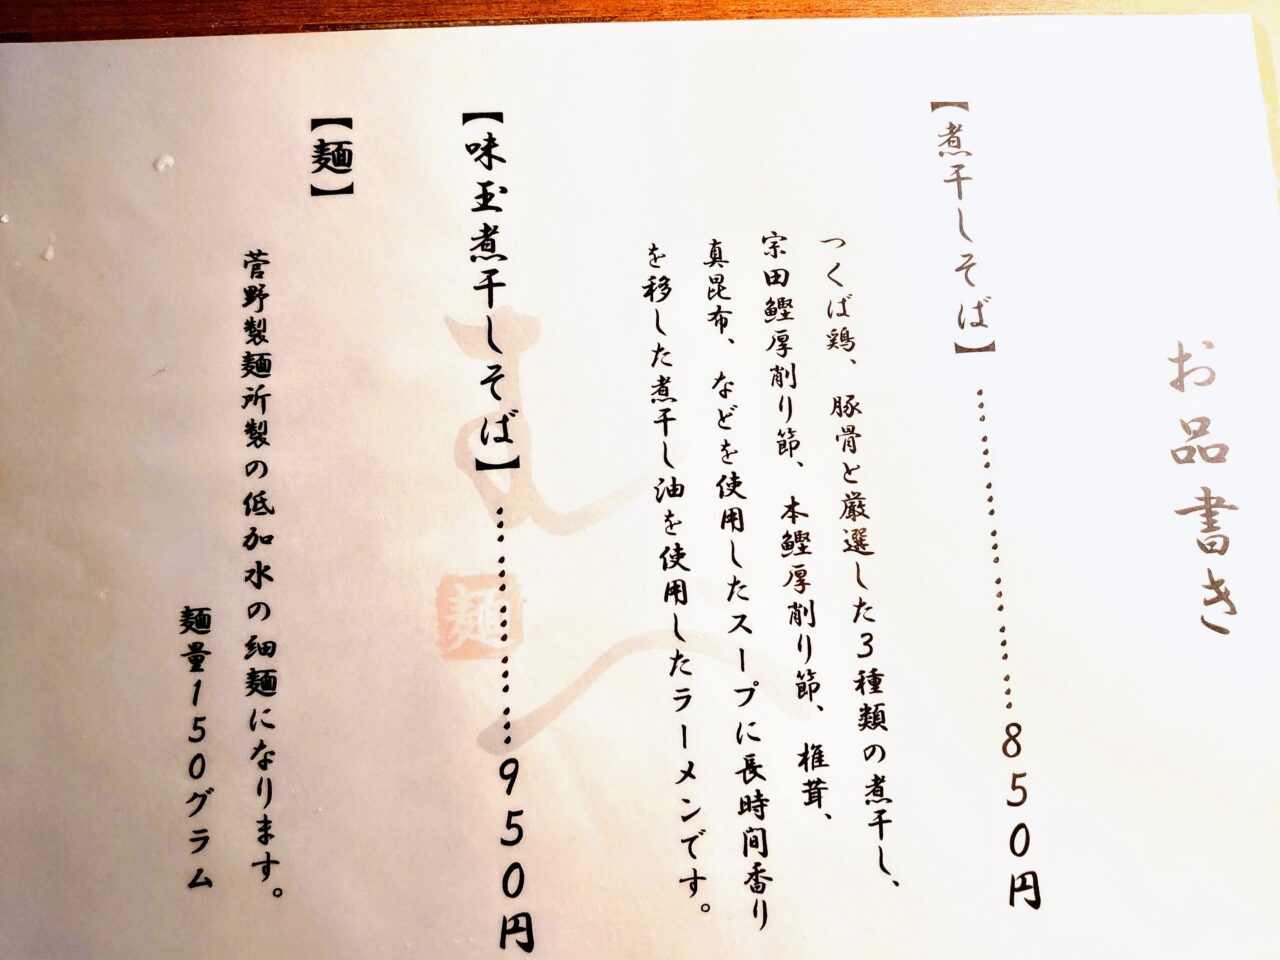 お品書き
【煮干しそば】…………………850円
つくば鶏、豚骨と厳選した3種類の煮干し、
宗田鰹厚削り節、本鰹厚削り節、椎茸、
真昆布、などを使用したスープに長時間香り
を移した煮干し油を使用したラーメンです。
【味玉煮干しそば】……………950円
【麺】
菅野製麺所製の低加水の細麺になります。
麺量150グラム
麺